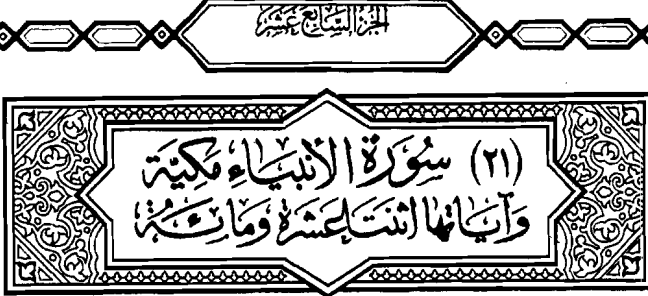 الجزء السابع عشر
(٢١) سُورَةُ الأَنْبِيَاءِ مَكِّيَّة
وَآيَاتُهَا اثْنَتَا عَشْرَةَ وَمِائَةٌ